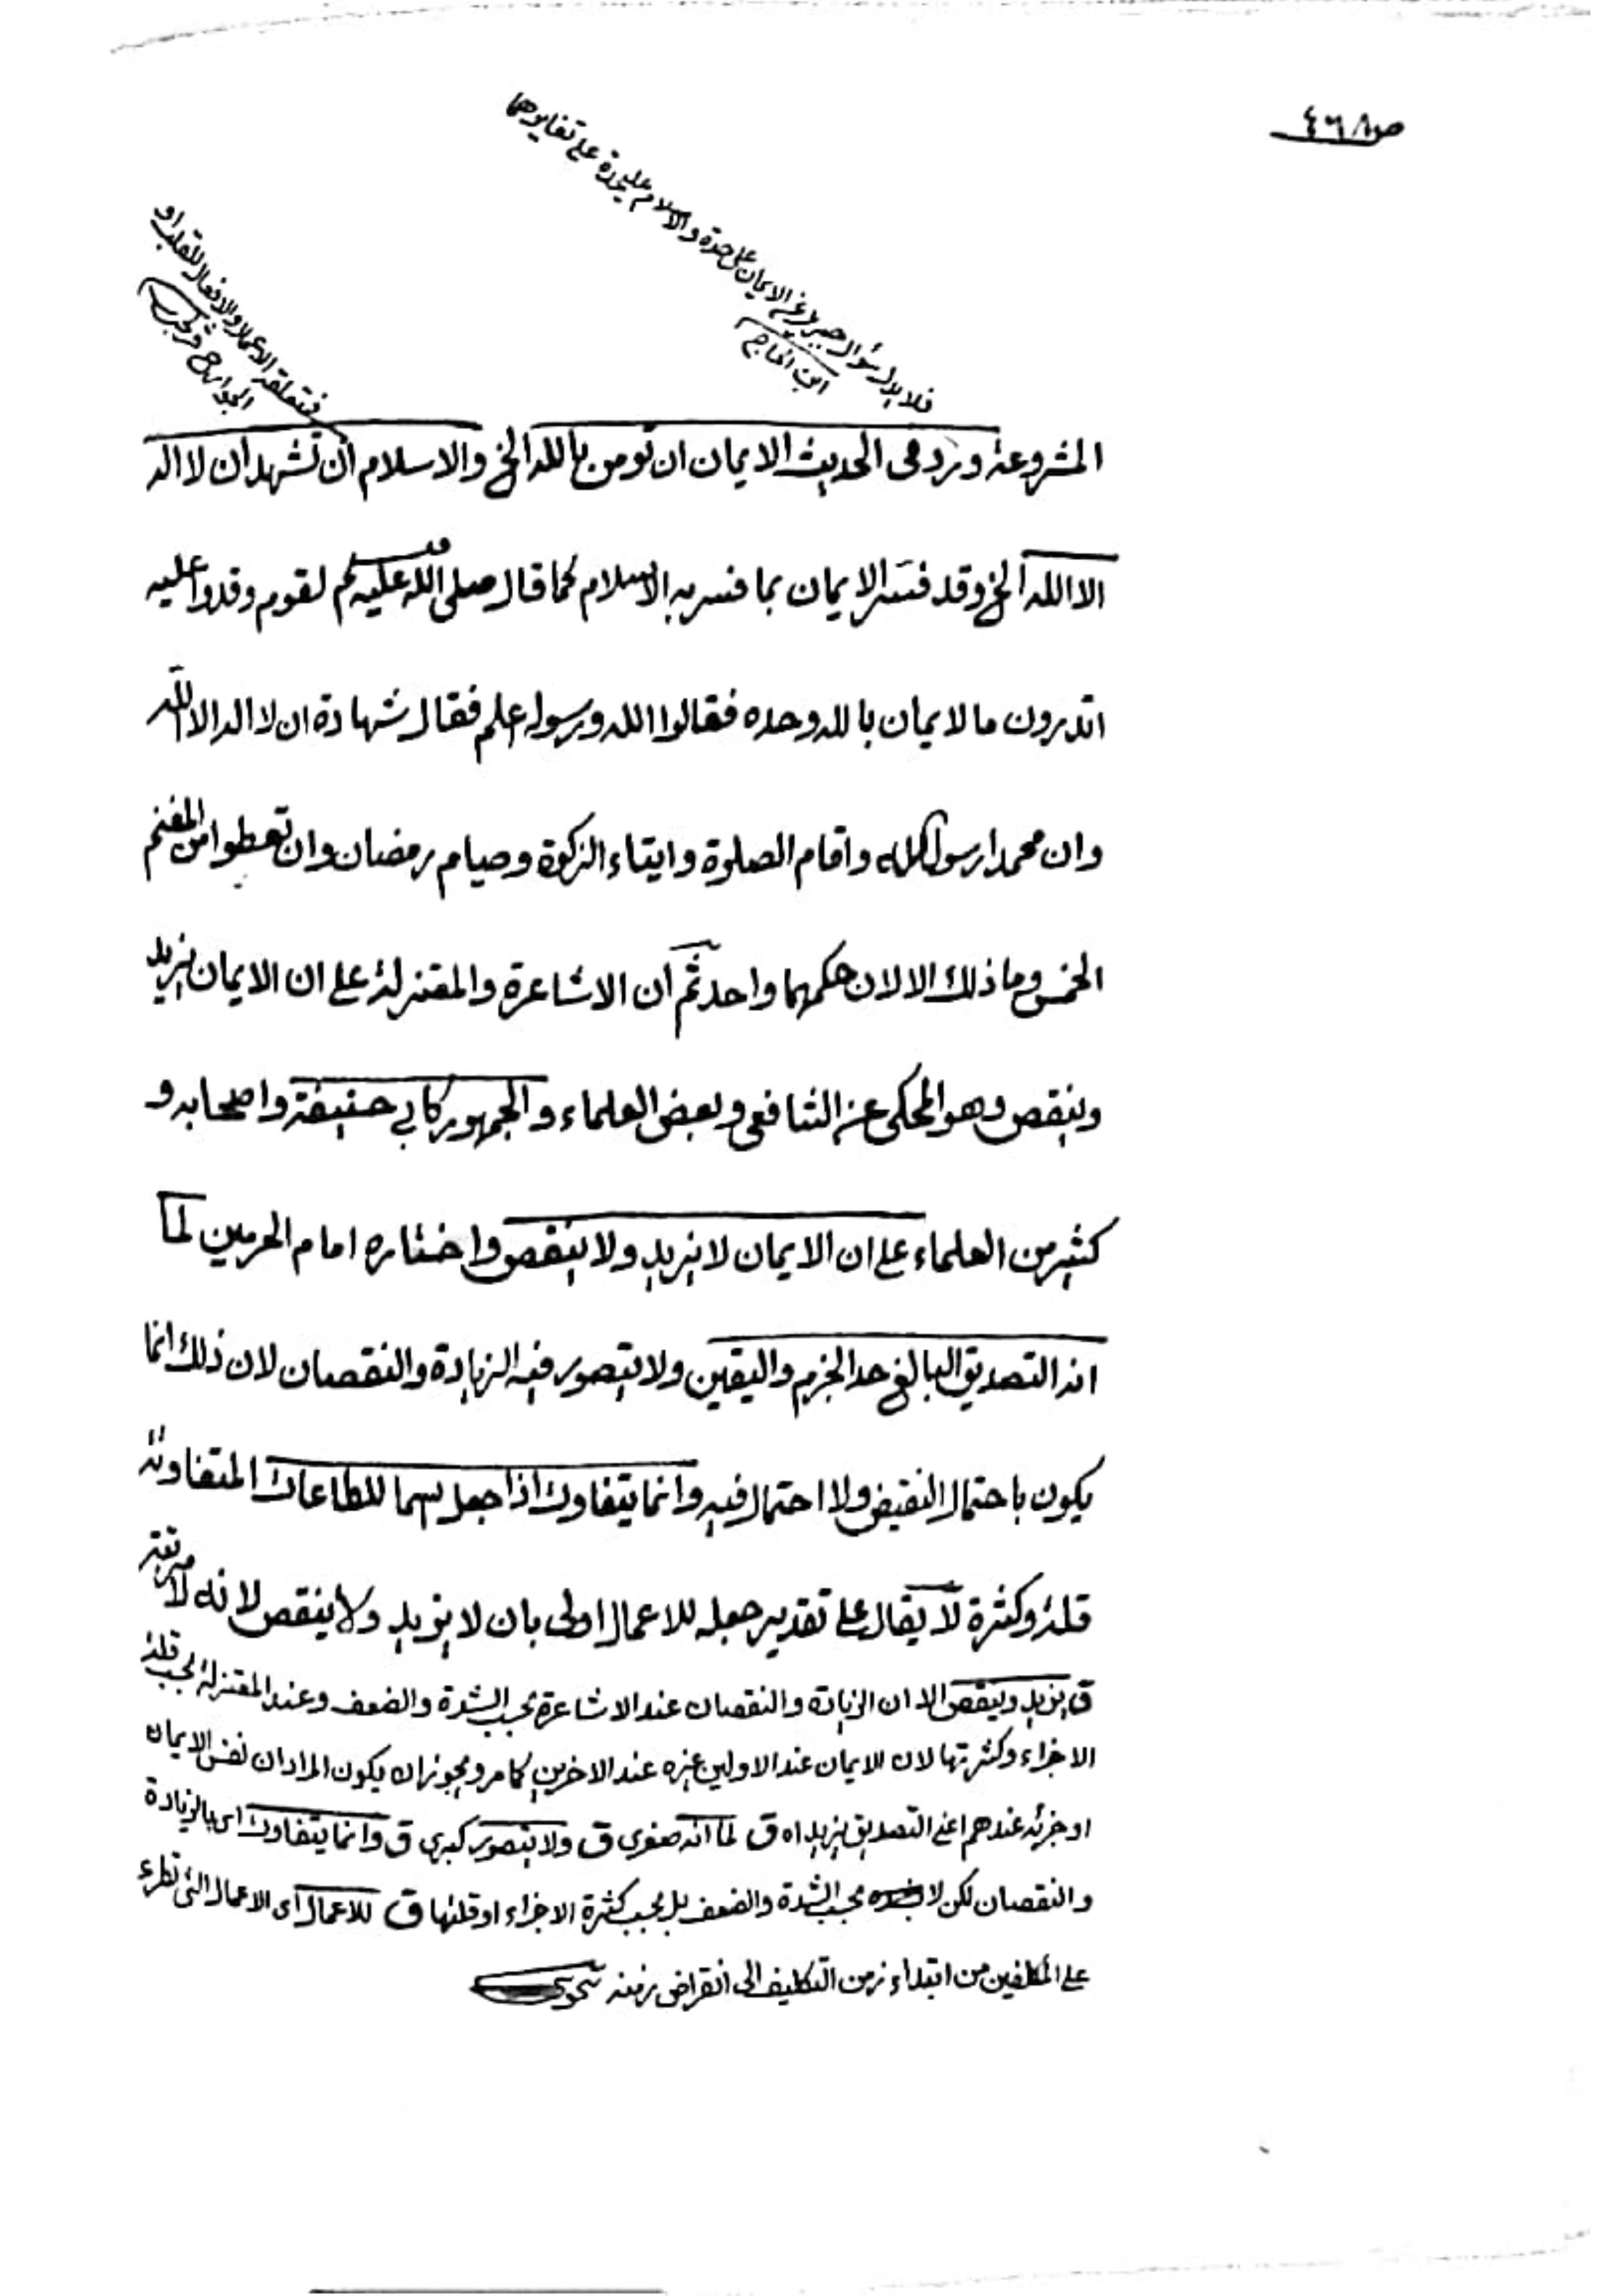 ص ٤٦٨
فلا يدل سؤال جبريل عن الايمان على حدة والاسلام على حدة على تغايرهما
ابن الحاج
فتعلقه الاعمال والافعال للقلب او
الجوارح قزلجي
المشروعة ورد في الحديث الايمان ان تومن بالله الخ والاسلام ان تشهد ان لا اله
الا الله الخ وقد فسر الايمان بما فسر به الاسلام كما قال صلى الله عليه وسلم لقوم وفدوا عليه
اتدرون ما لايمان بالله وحده فقالوا الله ورسوله اعلم فقال شهادة ان لا اله الا الله
وان محمدا رسول الله واقام الصلوة وايتاء الزكوة وصيام رمضان وان تعطوا من المغنم
الخمس وما ذلك الا لان حكمهما واحد ثم ان الاشاعرة والمعتزلة على ان الايمان يزيد
وينقص وهو المحكى عن الشافعى وبعض العلماء والجمهور كابي حنيفة واصحابه و
كثير من العلماء على ان الايمان لا يزيد ولا ينقص واختاره امام الحرمين لما
انه التصديق البالغ حد الجزم واليقين ولا يتصور فيه الزيادة والنقصان لان ذلك انما
يكون باحتمال النقيض ولا احتمال فيه وانما يتفاوت اذا جعل اسما للطاعات المتفاوتة
قلة وكثرة لا يقال على تقدير جعله للاعمال اولى بان لا يزيد ولا ينقص لانه لا مرتبة
ق يزيد وينقص الا ان الزيادة والنقصان عند الاشاعرة بحسب الشدة والضعف وعند المعتزلة بحسب قلة
الاجزاء وكثرتها لان الايمان عند الاولين غيره عند الاخرين كما مر ويجوز ان يكون المراد ان نفس الايمان
او جزئه عندهم اعني التصديق يزيد اه ق لما انه صغرى ق ولا يتصور كبرى ق وانما يتفاوت اى بالزيادة
والنقصان لكن لا بحسب الشدة والضعف بل بحسب كثرة الاجزاء او قلتها ق للاعمال اى الاعمال التى تطرء
على المكلفين من ابتداء زمن التكليف الى انقراض زمنه